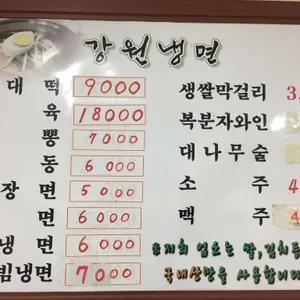 강원냉면
대 떡 9000
육 18000
뽕 7000
동 6000
장 면 5000
면 6000
냉 면 6000
빔냉면 7000
생쌀막걸리 3.
복분자와인
대나무술
소 주 4
맥 주 4
※저희 업소는 쌀,김치
국내산만을 사용합니다